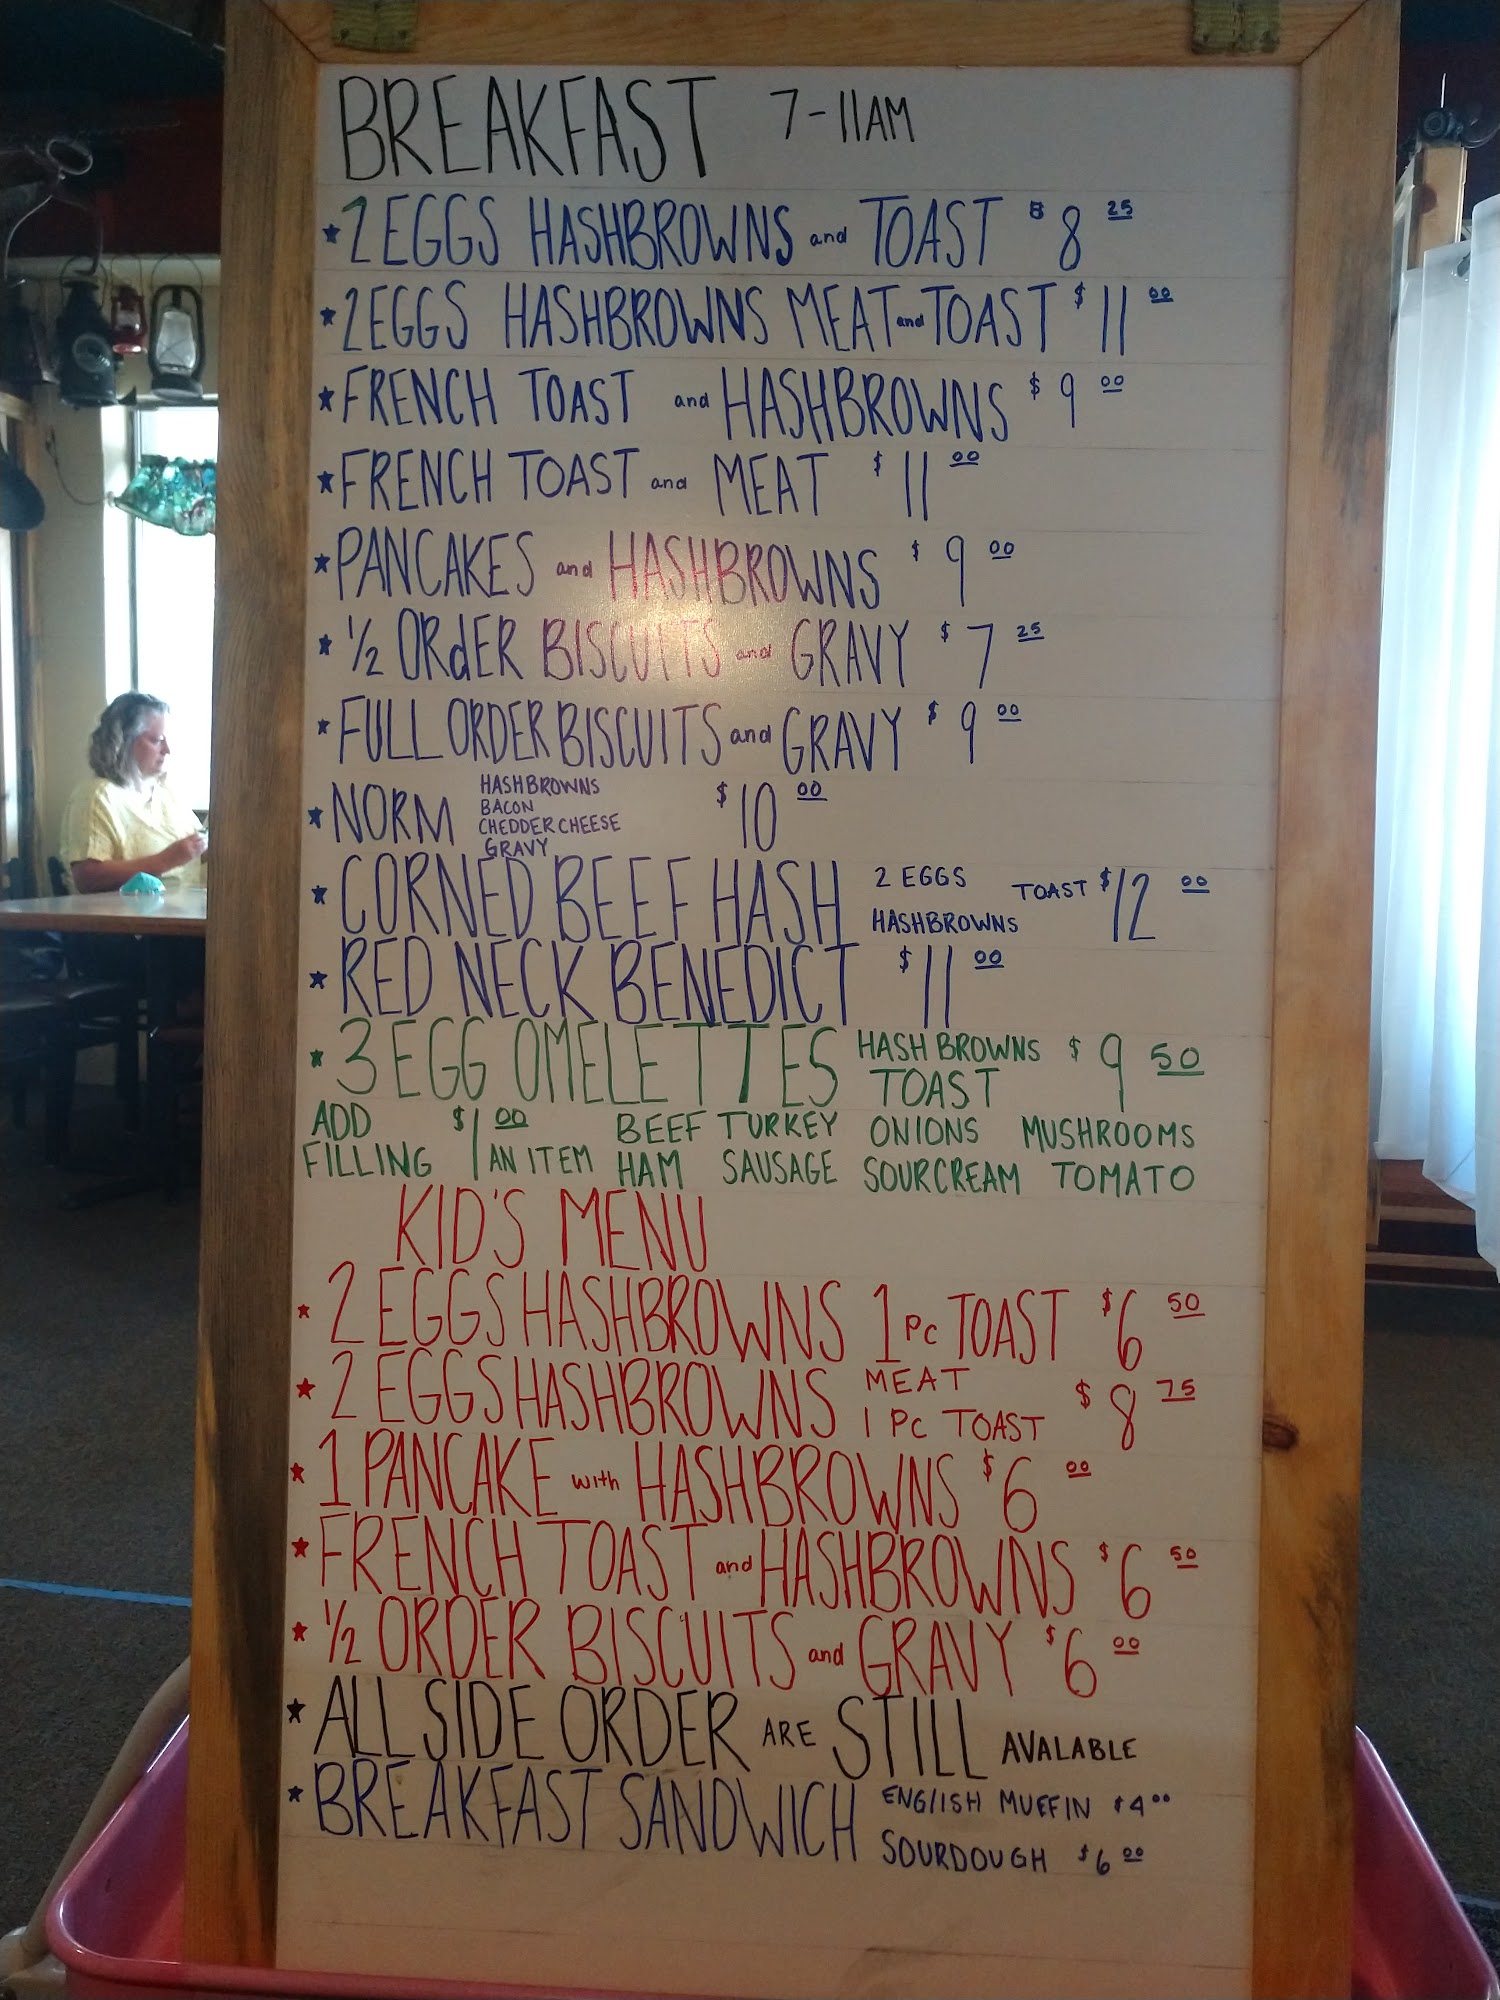 BREAKFAST 7-11AM
★ 2 EGGS HASHBROWNS and TOAST $8 25
★ 2 EGGS HASHBROWNS MEAT and TOAST $11 00
★ FRENCH TOAST and HASHBROWNS $9 00
★ FRENCH TOAST and MEAT $11 00
★ PANCAKES and HASHBROWNS $9 00
★ 1/2 ORdER BISCUITS and GRAVY $7 25
★ FULL ORDER BISCUITS and GRAVY $9 00
★ NORM HASHBROWNS
BACON
CHEDDER CHEESE
GRAVY
$10 00
★ CORNED BEEF HASH 2 EGGS
HASHBROWNS
TOAST $12 00
★ RED NECK BENEDICT $11 00
★ 3 EGG OMELETTES HASH BROWNS
TOAST
$9 50
ADD FILLING $1 00 AN ITEM
BEEF TURKEY ONIONS MUSHROOMS
HAM SAUSAGE SOURCREAM TOMATO
KID'S MENU
★ 2 EGGS HASHBROWNS 1 Pc TOAST $6 50
★ 2 EGGS HASHBROWNS MEAT
1 Pc TOAST
$8 75
★ 1 PANCAKE with HASHBROWNS $6 00
★ FRENCH TOAST and HASHBROWNS $6 50
★ 1/2 ORDER BISCUITS and GRAVY $6 00
★ ALL SIDE ORDER ARE STILL AVALABLE
★ BREAKFAST SANDWICH ENGLISH MUFFIN $4 00
SOURDOUGH $6 00